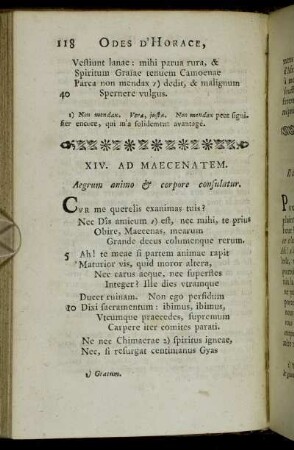 118 ODES D'HORACE,
Vestiunt lanae: mihi parua rura, &
Spiritum Graiae tenuem Camoenae
Parca non mendax 1) dedit, & malignum
40 Spernere vulgus.
1) Non mendax. Vera, justa. Non mendax peut signi-
fier encore, qui m'a solidement avantagé.
XIV. AD MAECENATEM.
Aegrum animo & corpore consolatur.
CVR me querelis exanimas tuis?
Nec Dîs amicum 1) est, nec mihi, te prius
Obire, Maecenas, mearum
Grande decus columenque rerum.
5 Ah! te meae si partem animae rapit
Maturior vis, quid moror altera,
Nec carus aeque, nec superstes
Integer? Ille dies vtramque
Ducet ruinam. Non ego perfidum
10 Dixi sacramentum: ibimus, ibimus,
Vtcumque praecedes, supremum
Carpere iter comites parati.
Me nec Chimaerae 2) spiritus igneae,
Nec, si resurgat centimanus Gyas
1) Graecum.